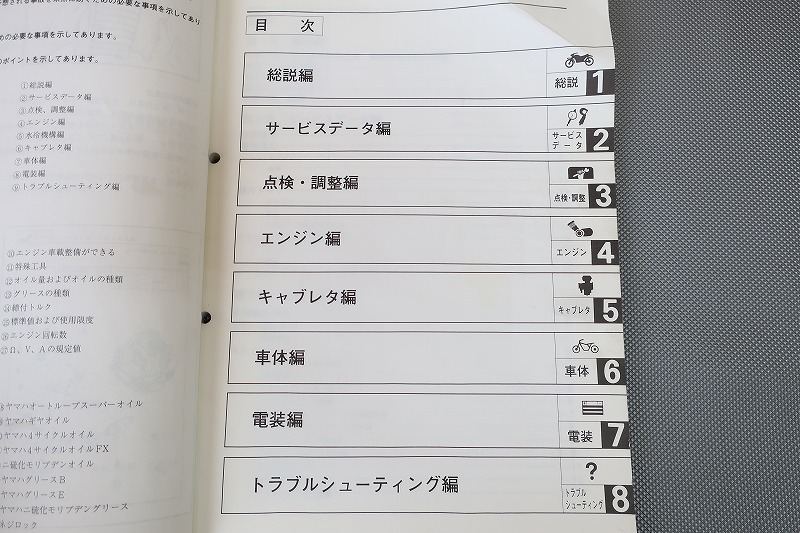 めの必要な事項を示してあります。
のポイントを示してあります。
①総説編
②サービスデータ編
③点検、調整編
④エンジン編
⑤水冷機構編
⑥キャブレタ編
⑦車体編
⑧電装編
⑨トラブルシューティング編
⑩エンジン車載整備ができる
⑪特殊工具
⑫オイル量およびオイルの種類
⑬グリースの種類
⑭締付トルク
⑮標準値および使用限度
⑯エンジン回転数
⑰Ω、V、Aの規定値
ヤマハオートループスーパーオイル
ヤマハギヤオイル
ヤマハ4サイクルオイル
ヤマハ4サイクルオイルFX
ニ硫化モリブデンオイル
ヤマハグリースB
ヤマハグリースE
ヤマハニ硫化モリブデングリース
ネジロック
目 次
総説編
総説 1
サービスデータ編
サービス
データ 2
点検・調整編
点検・調整 3
エンジン編
エンジン 4
キャブレタ編
キャブレタ 5
車体編
車体 6
電装編
電装 7
トラブルシューティング編
?
トラブル
シューティング 8